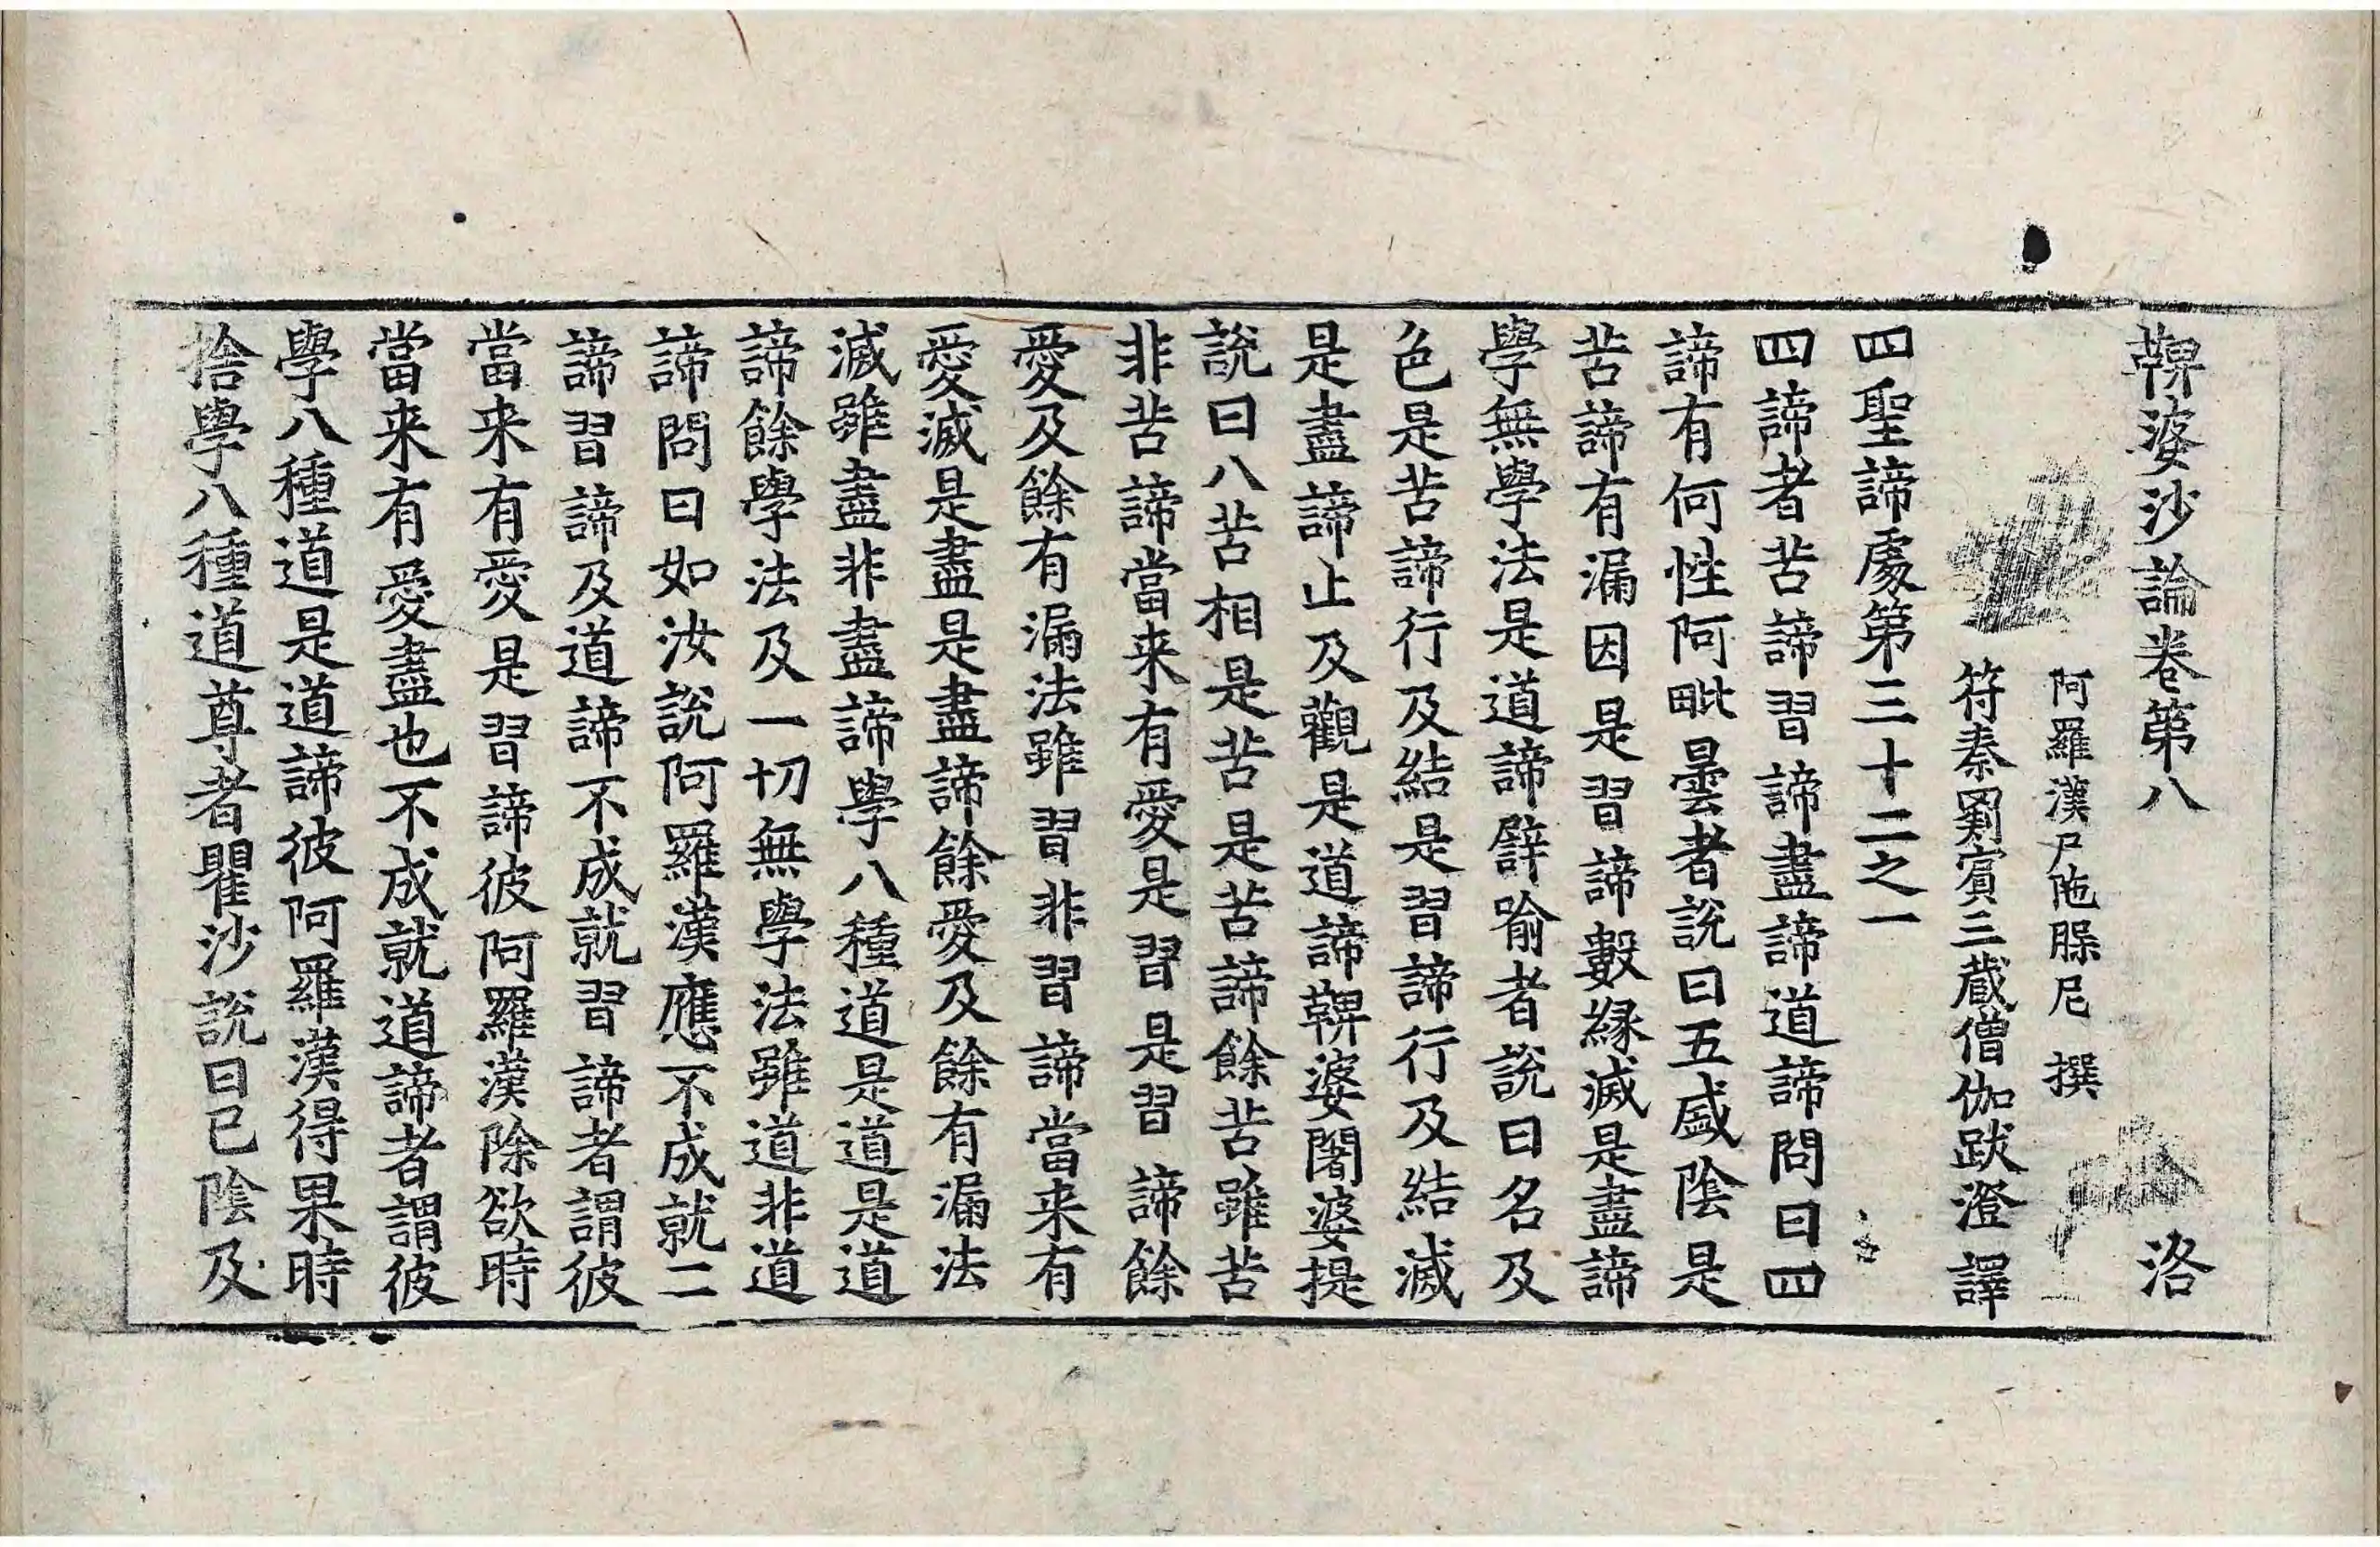 鞞婆沙論卷第八 洛
阿羅漢尸陁槃尼 撰
符秦罽賓三蔵僧伽跋澄 譯
四聖諦處第三十二之一
四諦者苦諦習諦盡諦道諦問曰四
諦有何性阿毗曇者說曰五盛陰是
苦諦有漏因是習諦數緣滅是盡諦
學無學法是道諦譬喻者說曰名及
色是苦諦行及結是習諦行及結滅
是盡諦止及觀是道諦鞞婆闍婆提
說曰八苦相是苦是苦諦餘苦雖苦
非苦諦當来有愛是習是習諦餘
愛及餘有漏法雖習非習諦當来有
愛滅是盡是盡諦餘愛及餘有漏法
滅雖盡非盡諦學八種道是道是道
諦餘學法及一切無學法雖道非道
諦問曰如汝說阿羅漢應不成就二
諦習諦及道諦不成就習諦者謂彼
當来有愛是習諦彼阿羅漢除欲時
當来有愛盡也不成就道諦者謂彼
學八種道是道諦彼阿羅漢得果時
捨學八種道尊者瞿沙說曰已陰及